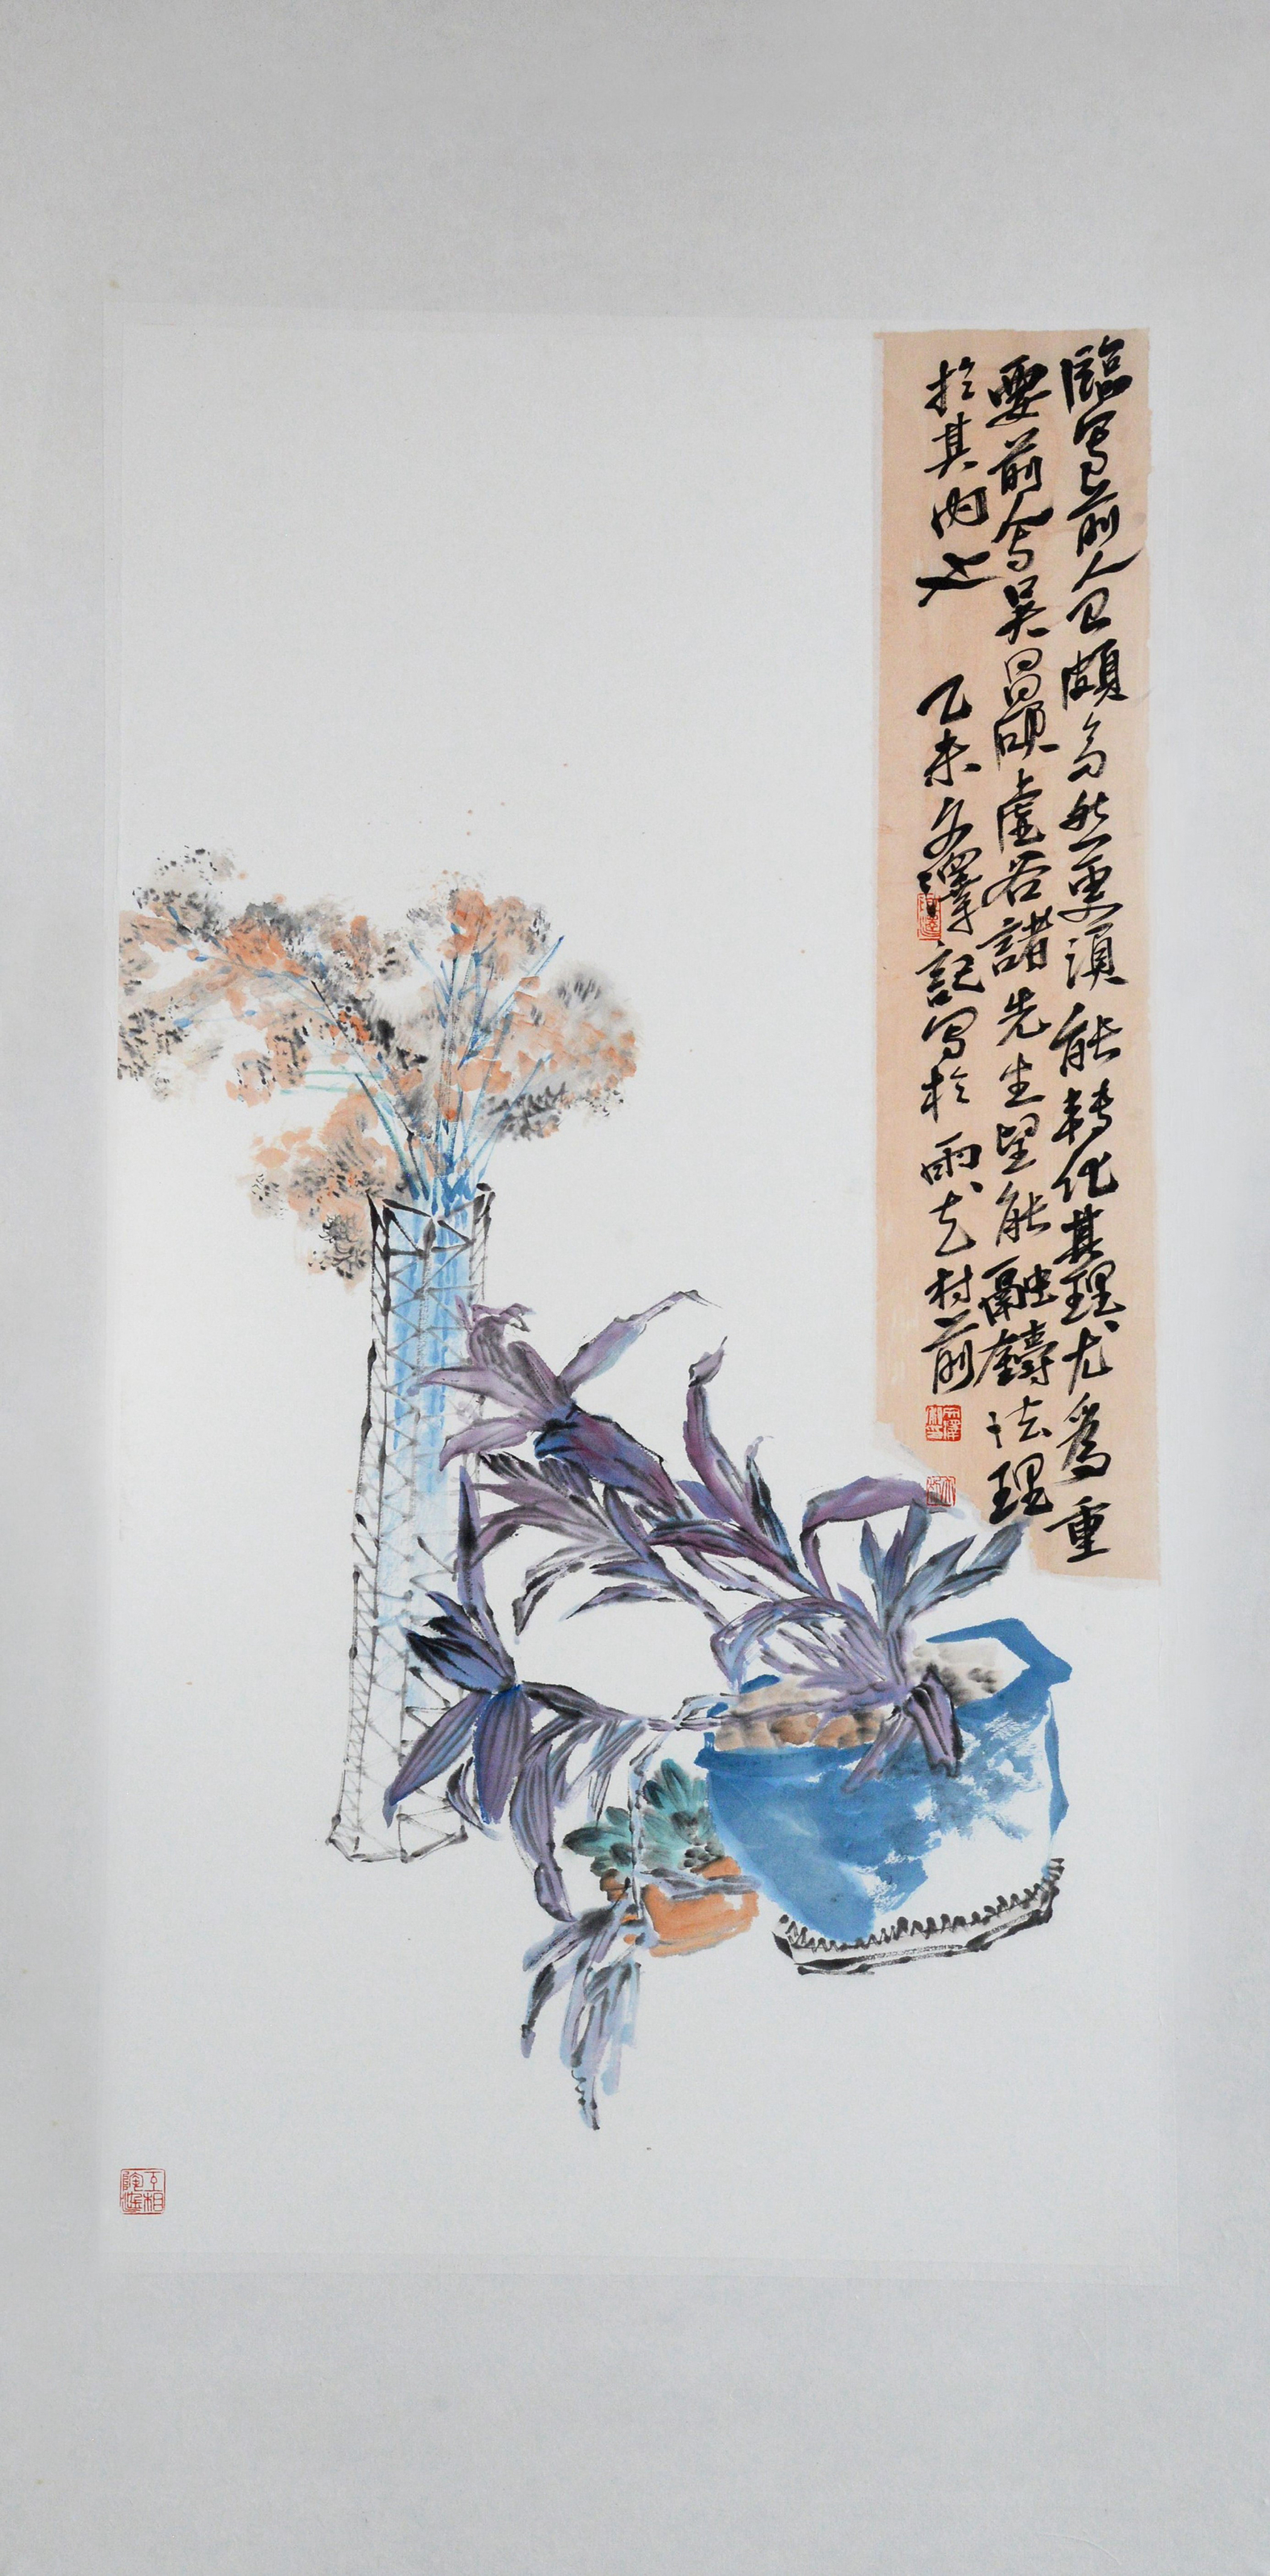 臨寫前人已頗多然更須能轉化其理尤為重
要前人如吴昌碩虚谷諸先生望能融鑄法理
於其內也 乙未文澤記寫於雨花村前